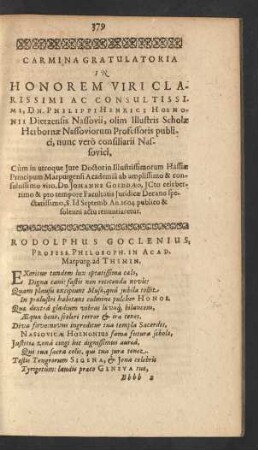 379
CARMINA GRATULATORIA
IN
HONOREM VIRI CLA-
RISSIMI AC CONSULTISSI-
MI, DN. PHILIPPI HENRICI HOENO-
NII Dietzensis Nassovii, olim Illustris Scholæ
Herbornæ Nassoviorum Professoris publi-
ci, nunc verò consiliarii Nas-
sovici,
Cùm in utroque Jure Doctor in Illustrissimorum Hassiæ
Principum Marpurgensi Academiâ ab amplissimo & con-
sultissimo viro, Dn. JOHANNE GOEDDÆO, JCto celeber-
rimo & pro tempore Facultatis Juridicæ Decano spe-
ctatissimo, Id Septemb. An. 1604 publico &
solenni actu renuntiaretur.
RODOLPHUS GOCLENIUS,
PROFESS. PHILOSOPH. IN ACAD.
Marpurg. ad THEMIN.
EXeritur tandem lux optatissima cœlo,
Digna cani: fastis non reticenda novis:
Quam plausu excipiunt Musæ, quâ nobile tollit
In prælustri habitans culmine pulcher HONOS.
Quæ dextrâ gladium vibras lævâque bilancem,
Æqua boni, sceleri terror & ira tenes,
Diva ferventem ingreditur tua templa Sacerdos,
NASSOVICÆ HOENONIUS fama futura scholæ,
Justitiæ zonâ cingi hoc dignissimus aureâ,
Qui tua sacra colit, qui tua jura tenet.
Testis Teugrorum SIGENA, & Jena celebris
Tyrigetûm: laudis præco GENEVA tuæ,
Bbbb 2